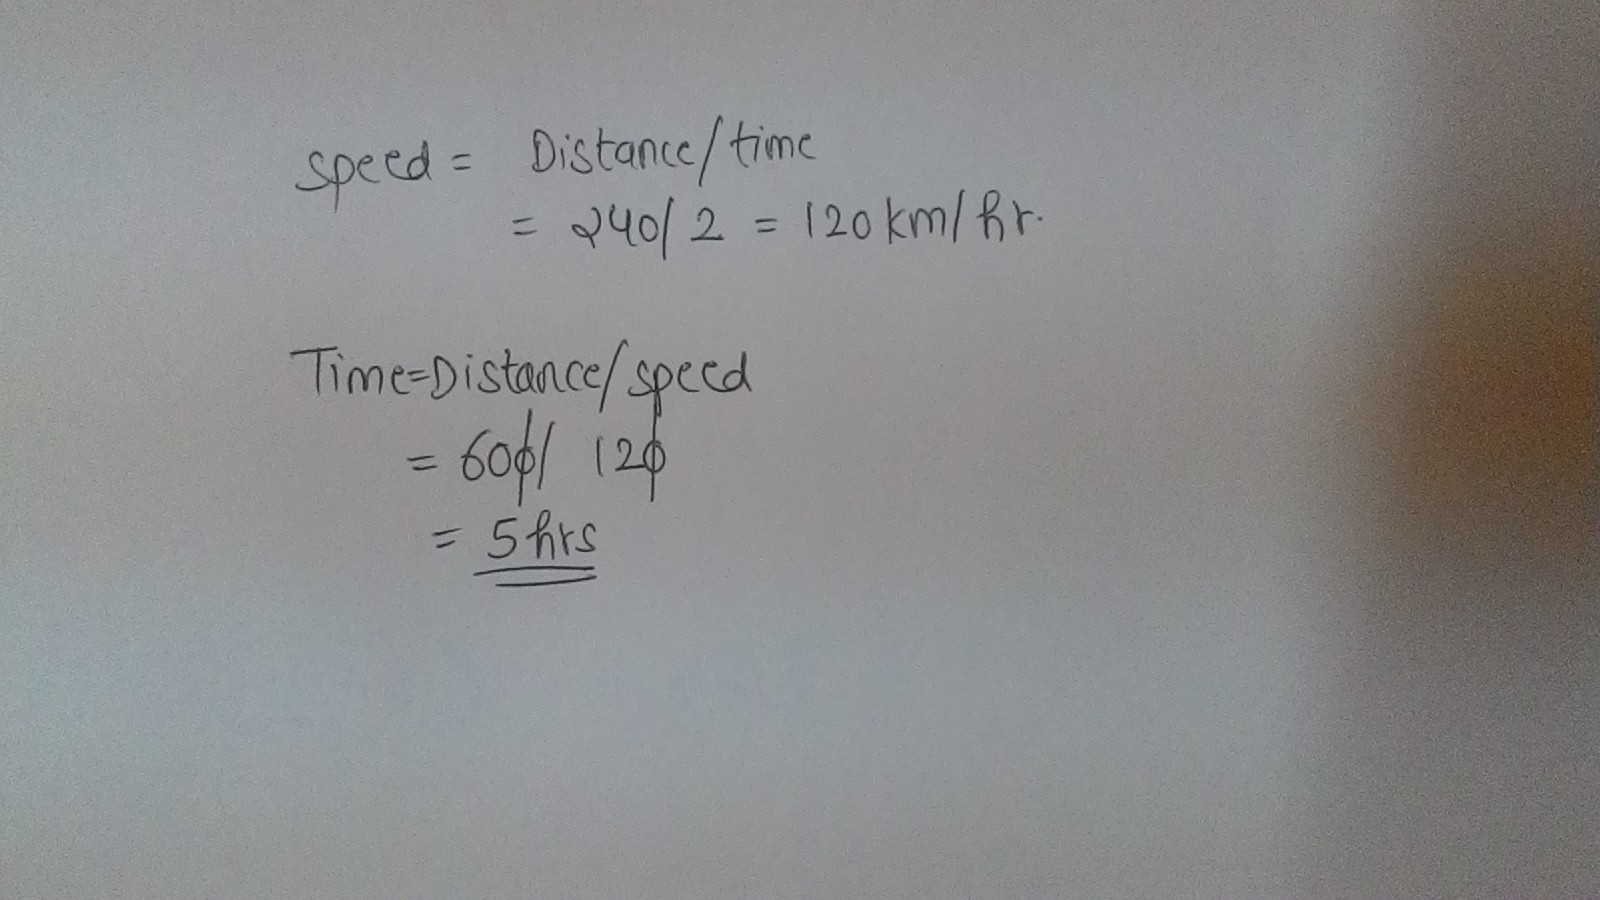 speed = Distance/time
= 240/2 = 120 km/hr.
Time=Distance/speed
= 600/ 120
= 5hrs